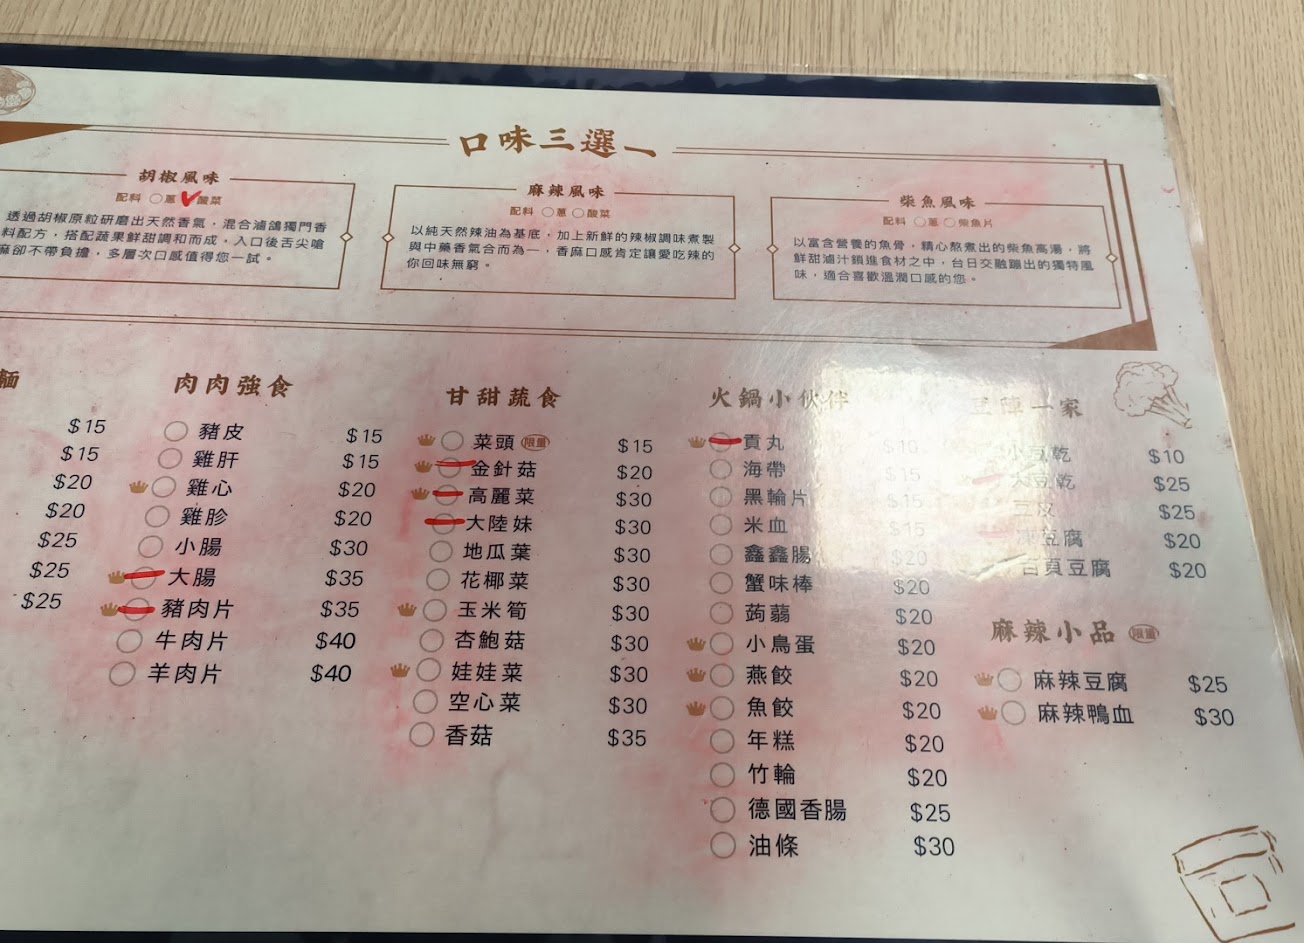 口味三選一
胡椒風味
配料 蔥 酸菜
透過胡椒原粒研磨出天然香氣，混合滷鴿獨門香
料配方，搭配蔬果鮮甜調和而成。入口後舌尖嗆
麻卻不帶負擔，多層次口感值得您一試。
麻辣風味
配料 蔥 酸菜
以純天然辣油為基底，加上新鮮的辣椒調味煮製
與中藥香氣合而為一，香麻口感肯定讓愛吃辣的
你回味無窮。
柴魚風味
配料 蔥 柴魚片
以富含營養的魚骨，精心熬煮出的柴魚高湯，將
鮮甜滷汁鎖進食材之中，台日交融蹦出的獨特風
味，適合喜歡溫潤口感的您。
麵
$15
$15
$20
$20
$25
$25
$25
肉肉強食
豬皮 $15
雞肝 $15
雞心 $20
雞胗 $20
小腸 $30
大腸 $35
豬肉片 $35
牛肉片 $40
羊肉片 $40
甘甜蔬食
菜頭 限量 $15
金針菇 $20
高麗菜 $30
大陸妹 $30
地瓜葉 $30
花椰菜 $30
玉米筍 $30
杏鮑菇 $30
娃娃菜 $30
空心菜 $30
香菇 $35
火鍋小伙伴
貢丸 $10
海帶 $15
黑輪片 $15
米血 $15
鑫鑫腸 $20
蟹味棒 $20
蒟蒻 $20
小鳥蛋 $20
燕餃 $20
魚餃 $20
年糕 $20
竹輪 $20
德國香腸 $25
油條 $30
一家
小豆乾 $10
大豆乾 $25
豆皮 $25
凍豆腐 $20
百頁豆腐 $20
麻辣小品 限量
麻辣豆腐 $25
麻辣鴨血 $30